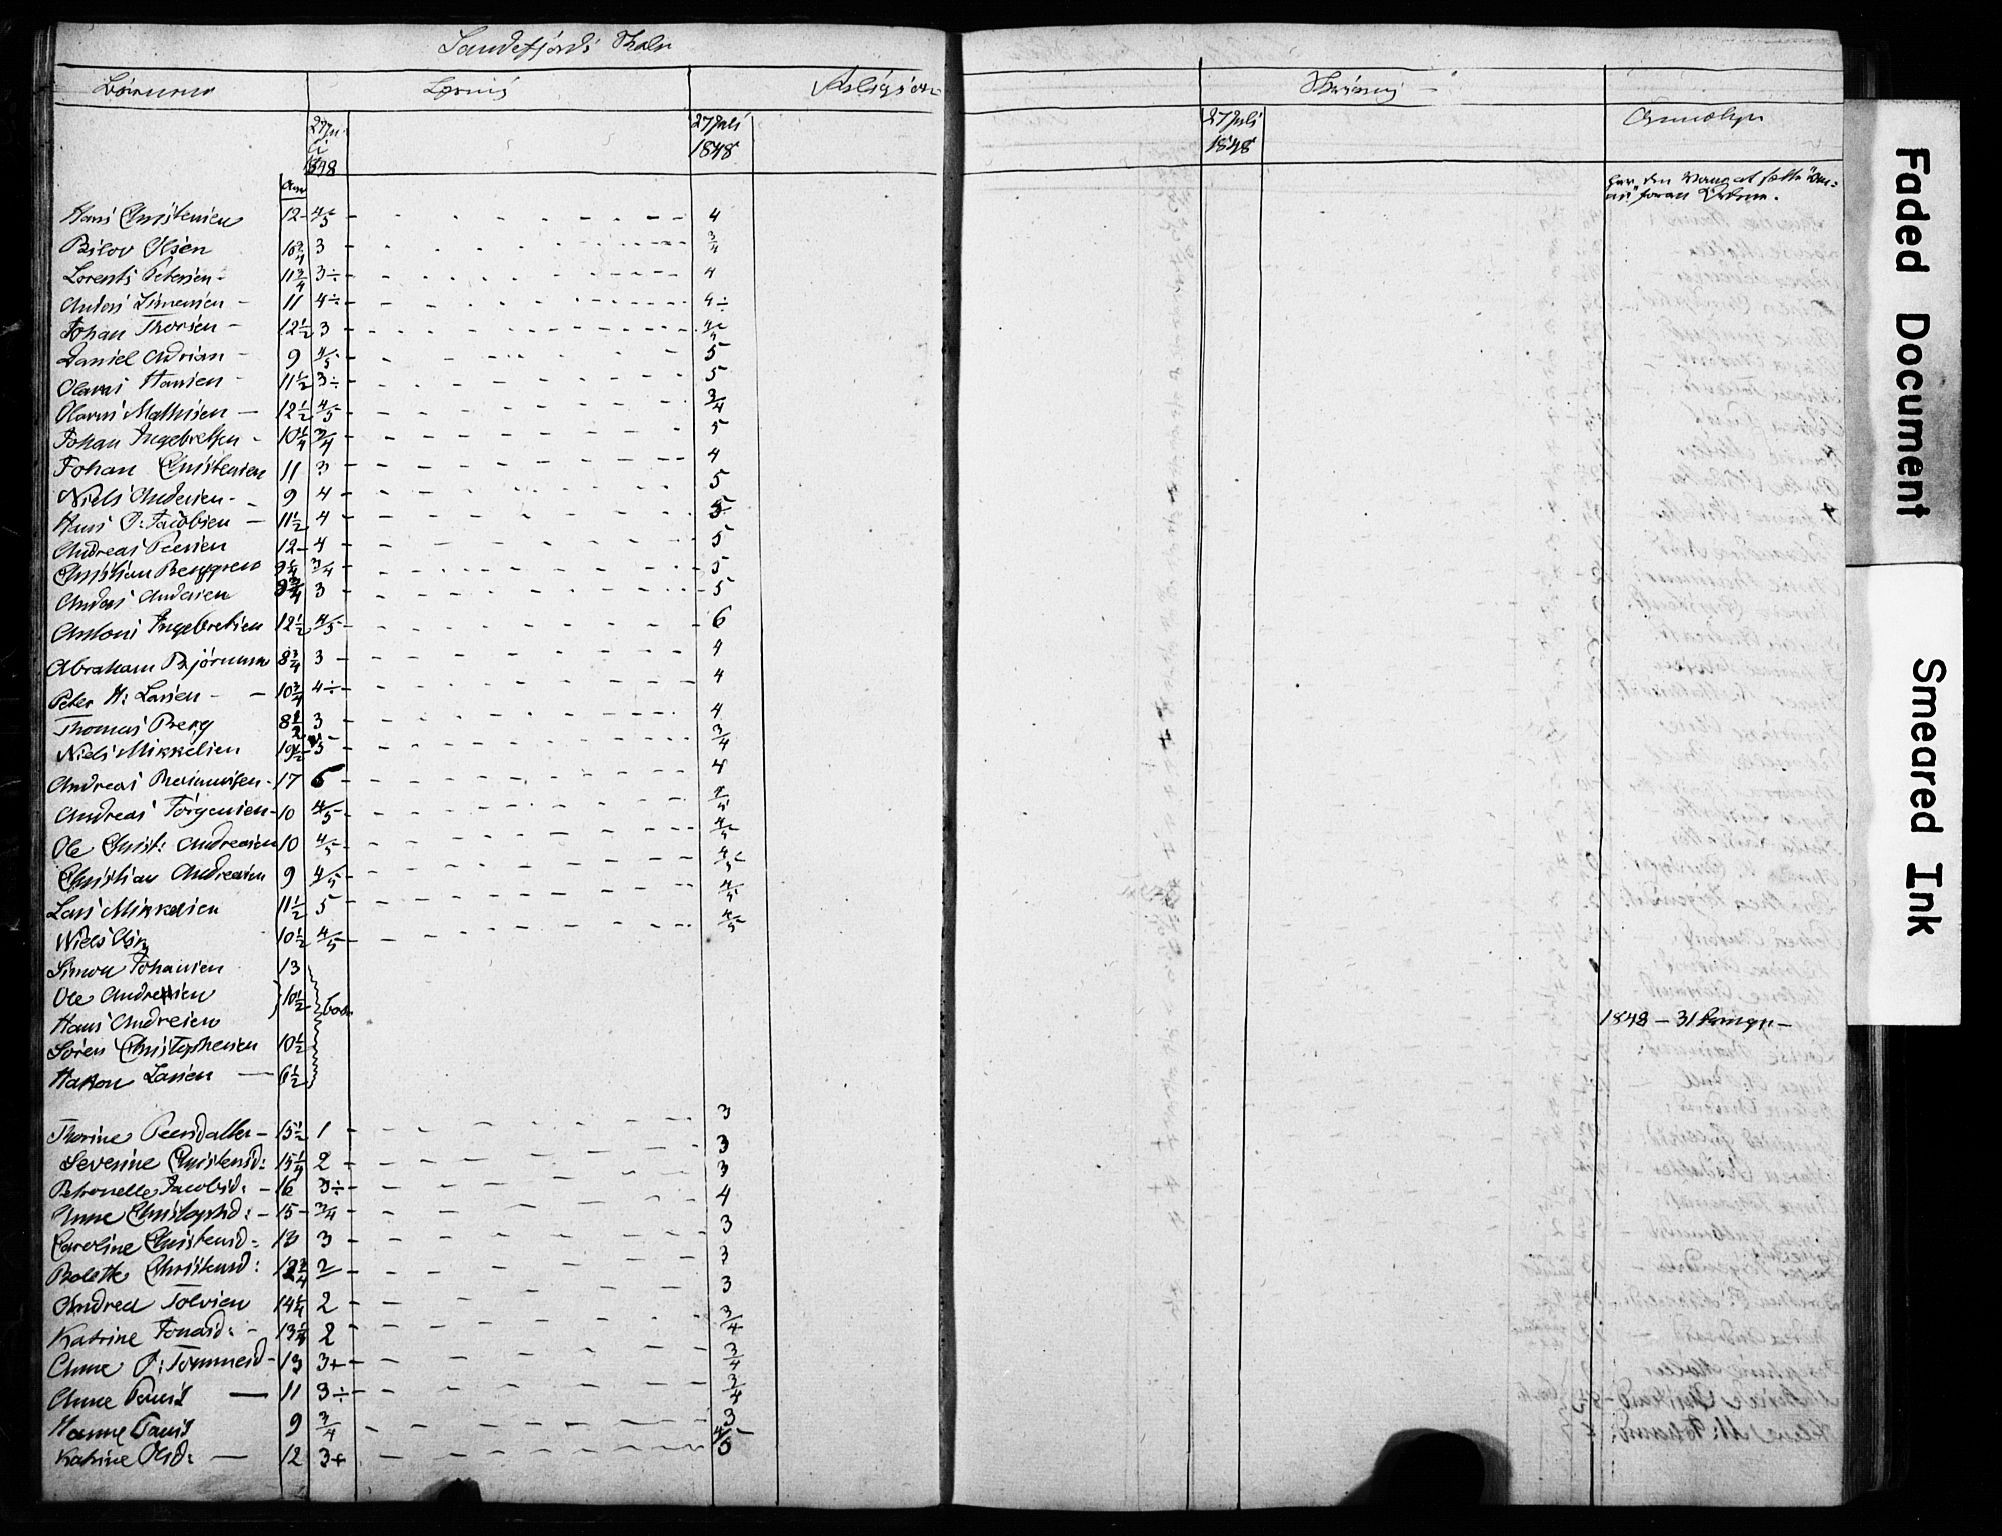 Sandefjords Skole
Børnene
Læsning
Religion
Skrivning
27 Juli 1848
27 Juli
1848
27 Juli
1848
Hans Christensen 12 4/5 4
Olsen 10 3/4 3 3/4
Lorents Petersen 11 3/4 3÷ 4
Anders Simensen 11 4÷ 4÷
Johan Thorsen 12 1/2 3
Daniel Adrian 9 4/5 5
Olaves Hansen 11 1/2 3÷ 5
Olaves Mathisen 12 1/2 4/5 3/4
Johan Ingebretsen 10 1/4 3/4 5
Johan Christensen 11 3 4
Niels Andersen 9 4 5
Hans P: Jacobsen 11 1/2 4 5
Andreas Peersen 12 4 5
Christian Berggren 9 1/4 3/4 5
Anders Andersen 3 5
Antoni Ingebretsen 12 1/2 4/5 6
Abraham Bjørnsen 8 3/4 3 4
Peter H: Larsen 10 3/4 4÷ 4
Thomas Berg 8 1/2 3 4
Niels Mikkelsen 5 3/4
Andreas 17 6 4
Andreas Jørgensen 10 4/5 4/5
Ole Christ: Andreasen 10 4/5 4/5
Christian Andreasen 9 4/5 4/5
Lars Mikkelsen 11 1/2 5 4/5
Niels Olsen 10 1/2 4/5 4/5
Simon Johansen 13
Ole Andresen 10 1/2
Hans Andresen
1848 – 31
Søren Christophersen 10 1/2
Hakon Larsen 6 1/2
Thorine Peersdatter 15 1/2 1 3
Severine Christensd: 15 1/4 2 3
Petronelle Jacobsd: 16 3÷ 3
Anne Christophd: 15 3/4 4
Caroline Christensd: 13 3 3
Bolette Christensd: 12 3/4 2 3
Andrea Tolvsen 14 1/4 2 3
Katrine Jonasd: 13 1/4 2 3/4
Anne P: Tommesd 13 3+ 3/4
Anne 11 3÷ 3/4
Hanne 9 3/4 3
Katrine Olsd: 12 3+ 4/5
Faded Document
Smeared Ink